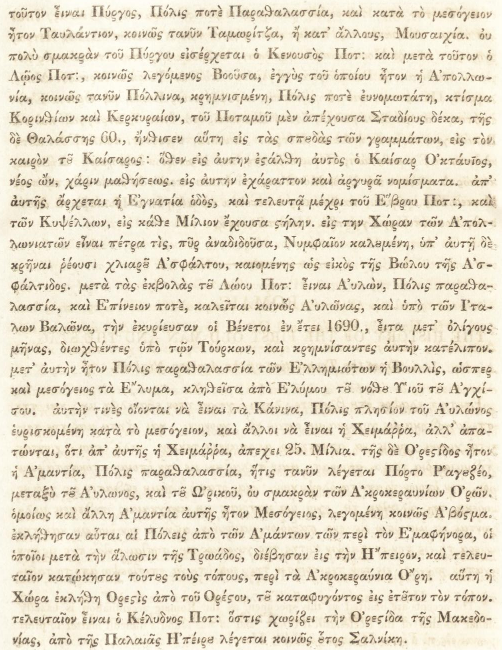 τοῦτον εἶναι Πύργος, Πόλις ποτὲ Παραθαλασσία, καὶ κατὰ τὸ μεσόγειον
ἦτον Ταυλάντιον, κοινῶς τανῦν Ταμωρίτζα, ἢ κατ' ἄλλους, Μουσαιχία. ȣ
πολὺ σμακρὰν τοῦ Πύργου εἰσέρχεται ὁ Κενουσὸς Ποτ: καὶ μετὰ τοῦτον ὁ
Λῷος Ποτ:, κοινῶς λεγόμενος Βοοῦσα, ἐγγὺς τοῦ ὁποίου ἦτον ἡ Α'πολλω-
νία, κοινῶς τανῦν Πόλλινα, κρημνισμένη, Πόλις ποτὲ ἐυνομωτάτη, κτίσμα
Κορινθίων καὶ Κερκυραίων, τοῦ Ποταμοῦ μὲν ἀπέχουσα Σταδίους δέκα, τῆς
δὲ Θαλάσσης 60., ἤνθισεν αὕτη εἰς τὰς σπȣδὰς τῶν γραμμάτων, εἰς τὸν
καιρὸν τȣ Καίσαρος: ὅθεν εἰς αυτὴν ἐςάλθη αυτὸς ὁ Καίσαρ Ο'κτάυϊος,
νέος ὢν, χάριν μαθήσεως. εἰς αυτὴν ἐχάραττον καὶ ἀργυρᾶ νομίσματα. ἀπ'
ἀυτῆς ἄρχεται ἡ Ε'γνατία ὁδὸς, καὶ τελευτᾷ μέχρι τοῦ Ε"βρου Ποτ:, καὶ
τῶν Κυψέλλων, εἰς κάθε Μίλιον ἔχουσα ςήλην. εἰς τὴν Χώραν τῶν Α'πολ-
λωνιατῶν εἶναι πέτρα τὶς, πῦρ ἀναδιδοῦσα, Νυμφαῖον καλȣμένη, ὑπ' αυτῇ δὲ
κρῆναι ῥέουσι χλιαρȣ Α'σφάλτου, καιομένης ὡς εἰκὸς τῆς Βώλου τῆς Α'σ-
φάλτιδος. μετὰ τὰς ἐκβολὰς τȣ Λώου Ποτ: εἶναι Α'υλὼν, Πόλις παραθα-
λασσία, καὶ Ε'πίνειον ποτὲ, καλεῖται κοινῶς Α'υλῶνας, καὶ ὑπὸ τῶν Ι'τα-
λων Βαλῶνα, τὴν ἐκυρίευσαν οἱ Βένετοι ἐν ἔτει 1690., ἔιτα μετ' ὀλίγους
μῆνας, διωχθέντες ὑπὸ τῶν Τούρκων, καὶ κρημνίσαντες αυτὴν κατέλιπον.
μετ' αυτὴν ἦτον Πόλις παραθαλασσία τῶν Ε'λλημιωτῶν ἡ Βουλλὶς, ὥσπερ
καὶ μεσόγειος τὰ Ε"λυμα, κληθεῖσα ἀπὸ Ε'λύμου τȣ νόθȣ Υ'ιοῦ τȣ Α'γχί-
σου. αυτὴν τινὲς οἴονται νὰ εἶναι τὰ Κάνινα, Πόλις πλησίον τοῦ Α'υλώνος
ἑυρισκομένη κατὰ τὸ μεσόγειον, καὶ ἄλλοι νὰ εἶναι ἡ Χειμάῤῥα, ἀλλ' ἀπα-
τώνται, ὅτι ἀπ' αυτῆς ἡ Χειμάῤῥα, ἀπεχει 25. Μίλια. τῆς δὲ Ο'ρεςίδος ἦτον
ἡ Α'μαντία, Πόλις παραθαλασσία, ἥτις τανῦν λέγεται Πόρτο Ρ'αγȣζέο,
μεταξὺ τȣ Α'υλωνος, καὶ τȣ Ω'ρικοῦ, ȣ σμακρὰν τῶν Α'κροκεραυνίων Ο'ρῶν.
ὁμοίως καὶ ἄλλη Α'μαντία αυτῆς ἦτον Μεσόγειος, λεγομένη κοινῶς Α'βόςμα.
ἐκλήθησαν αὗται αἱ Πόλεις ἀπὸ τῶν Α'μάντων τῶν περὶ τὸν Ε'μαφήνορα, οἱ
ὁποῖοι μετὰ τὴν ἅλωσιν τῆς Τρωάδος, διέβησαν εἰς τὴν Η"πειρον, καὶ τελευ-
ταῖον κατώκησαν τούτȣς τοὺς τόπους, περὶ τὰ Α'κροκεραύνια Ο"ρη. αὕτη ἡ
Χώρα ἐκλήθη Ορεςὶς ἀπὸ τοῦ Ορέςου, τȣ καταφυγόντος εἰς ἐτȣτον τὸν τόπον.
τελευταῖον εἶναι ὁ Κέλυδνος Ποτ: ὅςτις χωρίζει τὴν Ο'ρεςίδα τῆς Μακεδο-
νίας, ἀπὸ τῆς Παλαιᾶς Η'πείρȣ λέγεται κοινῶς ȣτος Σαλνίκη.